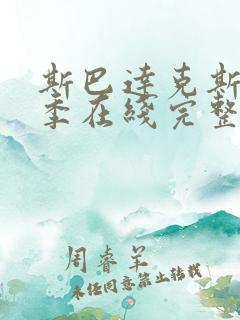 斯巴达克斯
季在线完整
周睿羊
未经同意禁止转载